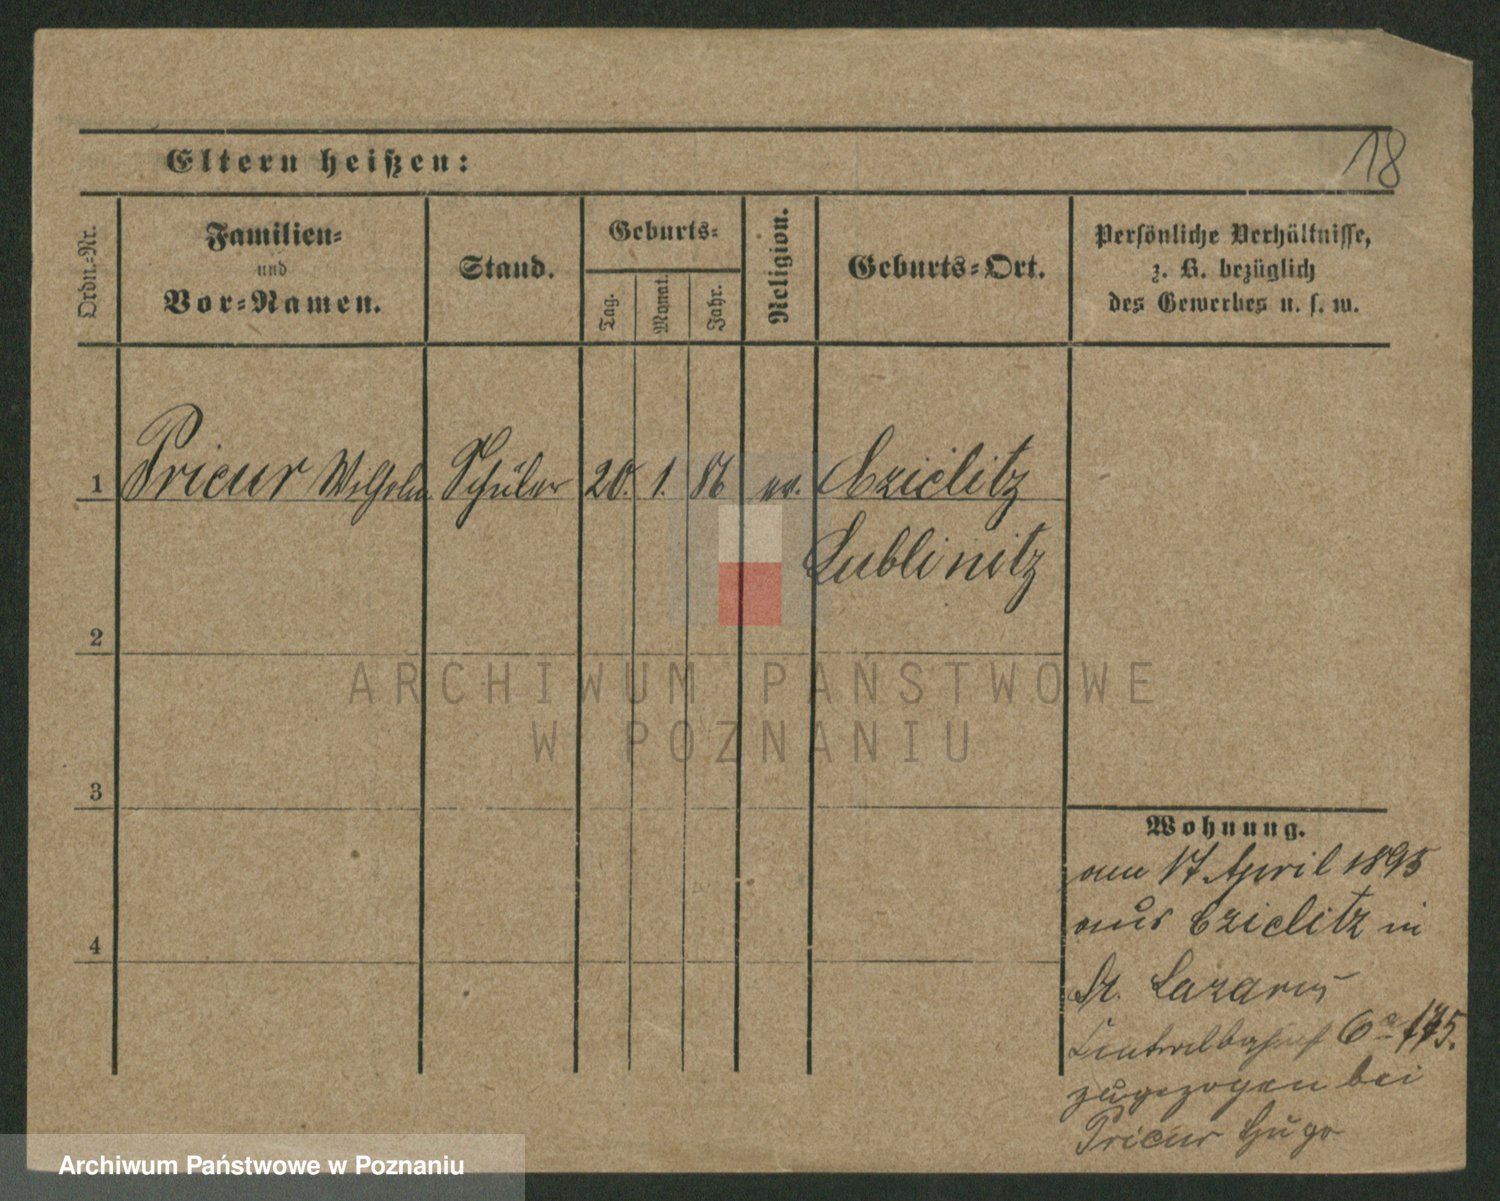 18
Eltern heißen:
Ordn.-Nr.
Familien-
und
Vor-Namen.
Stand.
Geburts-
Tag.
Monat.
Jahr.
Religion.
Geburts-Ort.
Persönliche Verhältnisse,
z. B. bezüglich
des Gewerbes u. s. w.
1 Pricur Wilhelm Schüler 20. 1. 86 ev. Ezielitz
Lublinitz
2
3
4
Wohnung.
am 17 April 1895
aus Ezielitz in
St. Lazarus
Centralbahnhof 6a 175.
zugezogen bei
Pricur Hugo
ARCHIWUM PAŃSTWOWE
W POZNANIU
Archiwum Państwowe w Poznaniu